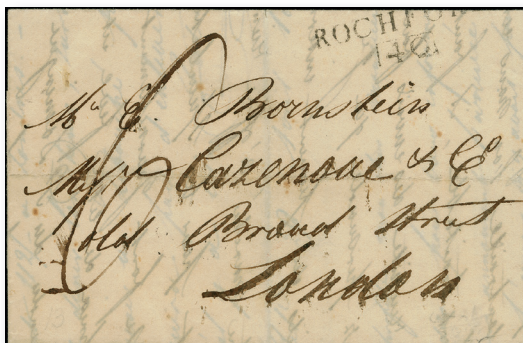 ROCHFO
Mr E. Bornstein
Messrs Cazenove & Co
old Broad Street
London